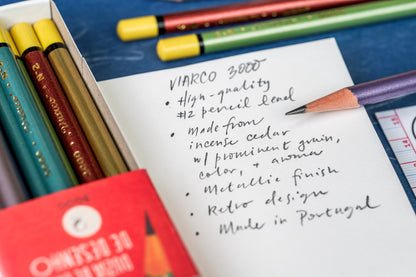 VIARCO 3000
• High-quality
#2 pencil lead
• Made from
incense cedar
w/ prominent grain,
color, + aroma
• Metallic finish
• Retro design
• Made in Portugal
DE DESENHO